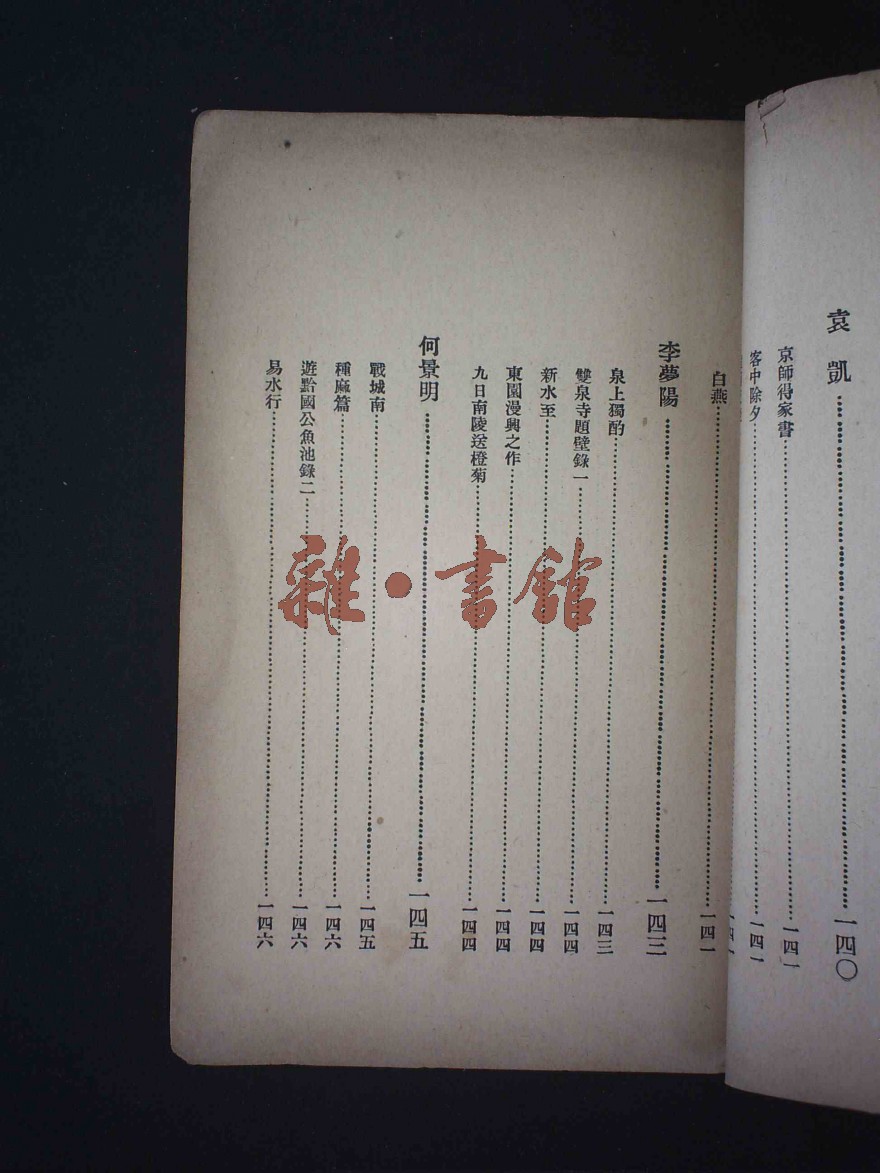 袁凱……一四〇
京師得家書……一四一
客中除夕……一四一
白燕……一四一
李夢陽……一四三
泉上獨酌……一四三
雙泉寺題壁錄一……一四四
新水至……一四四
東園漫興之作……一四四
九日南陵送橙菊……一四四
何景明……一四五
戰城南……一四五
種麻篇……一四六
遊黔國公魚池錄二……一四六
易水行……一四六
雜·書館